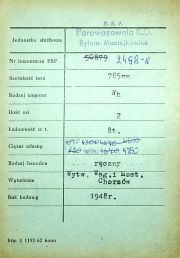 P. K. P.
Jednostka służbowa Parowozownia K.D.
Bytom-Maciejkowice
Nr inwentarza PKP 50879 2498-8
Szerokość toru 785mm
Rodzaj wagonu
Ilość osi 2
Ładowność w t. 8t.
Ciężar własny 4760
Rodzaj hamulca ręczny
Wytwórnia Wytw. Wag.i Most.
Chorzów
Rok budowy 1948r.